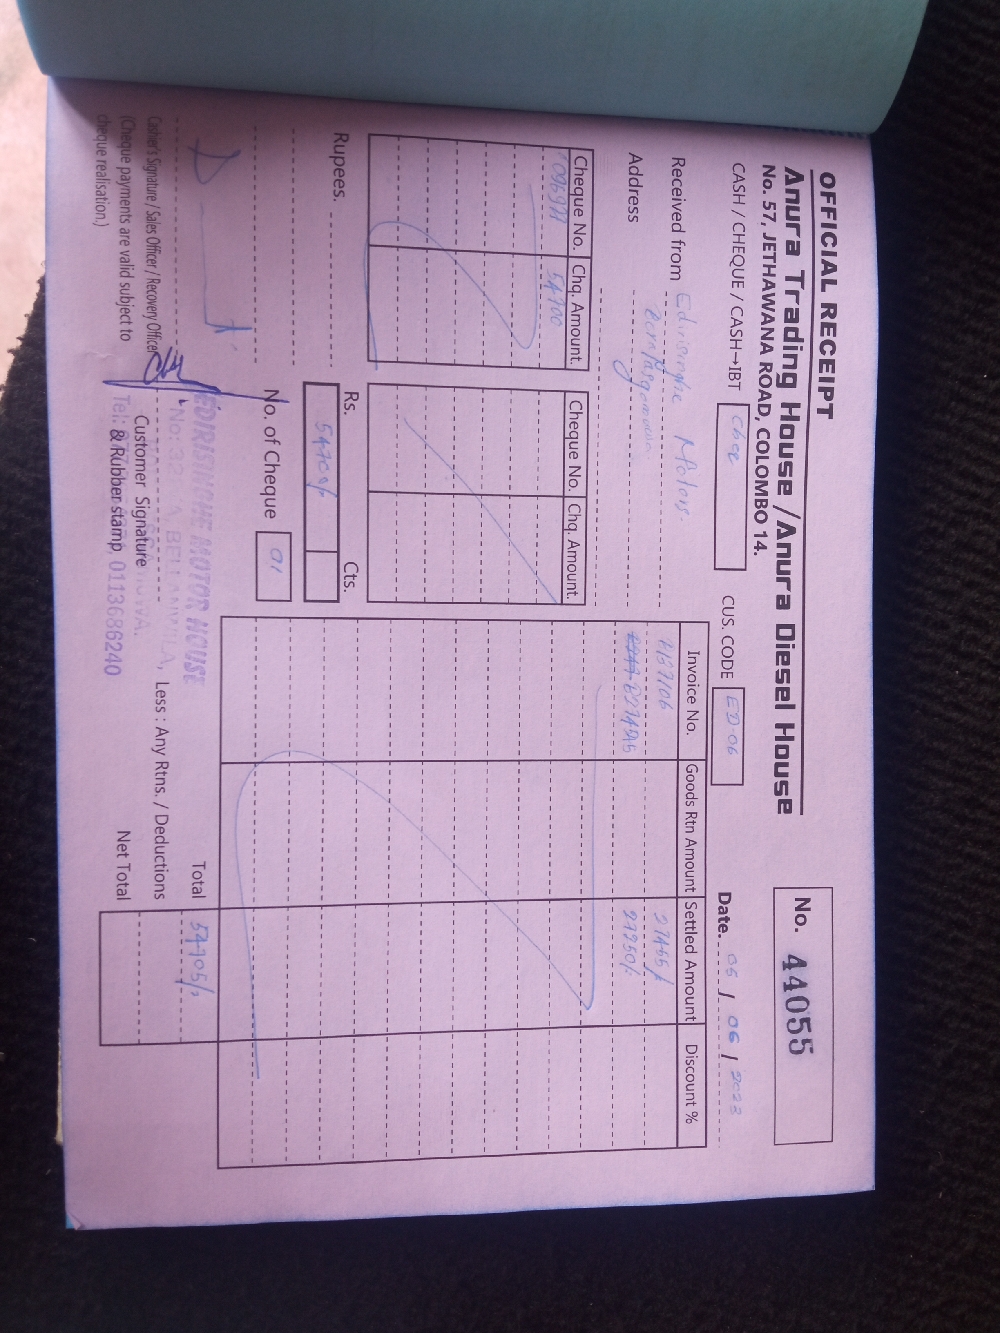 OFFICIAL RECEIPT
Anura Trading House / Anura Diesel House
No. 57, JETHAWANA ROAD, COLOMBO 14.
No. 44055
CASH / CHEQUE / CASH→IBT Chee
CUS. CODE ED-06
Date. 05 / 06 / 2023
Received from Edirisinghe Motors.
Address
Cheque No. Chq. Amount. Cheque No. Chq. Amount.
54700
Invoice No. Goods Rtn Amount Settled Amount Discount %
27455/
27250/.
Rupees.
Rs. Cts.
54700/
No. of Cheque 01
Total 54705/
Less : Any Rtns. / Deductions
Net Total
Casher's Signature / Sales Officer / Recovery Officer
(Cheque payments are valid subject to
cheque realisation.)
EDIRISINGHE MOTOR HOUSE
Customer Signature
& Rubber stamp
Tel: 0113686240